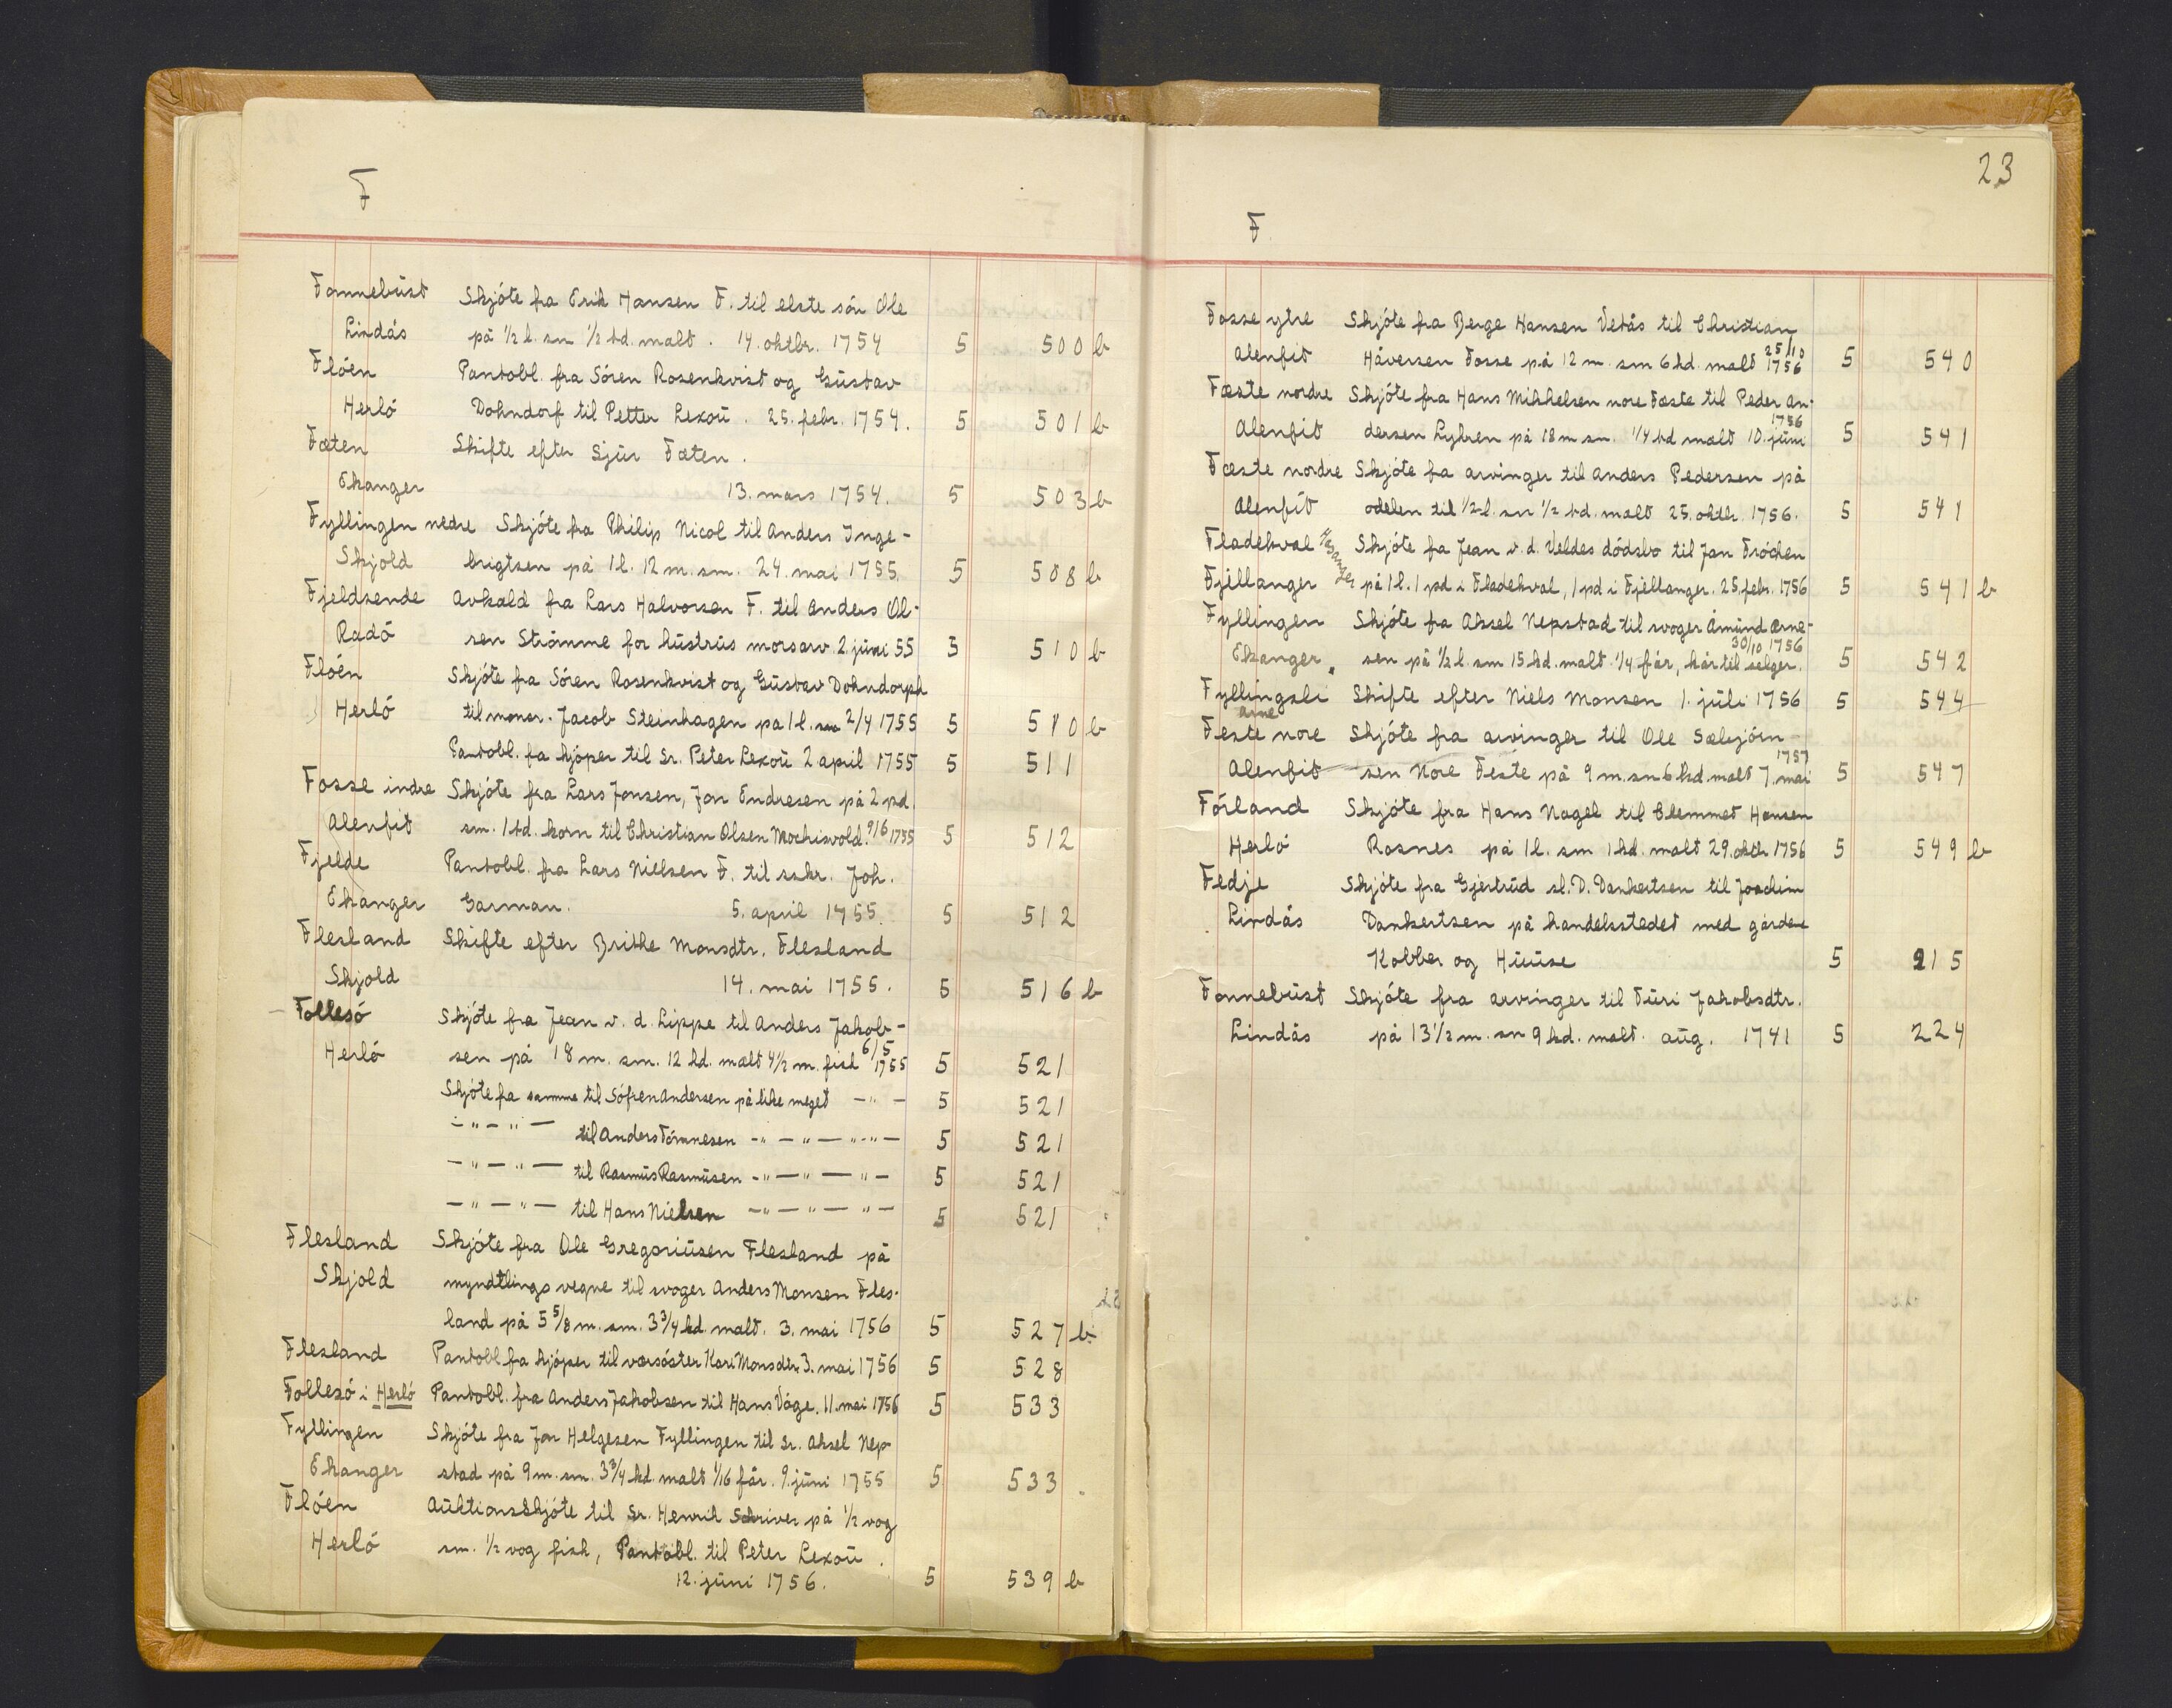 F
Fonnebust Skjöte fra Erik Hansen F. til elste sön Ole
Lindås på 1/2 l. sm 1/2 td. malt. 14. oktbr. 1754 5 500 b
Flöen Pantobl. fra Sören Rosenkvist og Gustav
Herlö Dohndorf til Petter Lexou. 25. febr. 1754. 5 501 b
Fæten Skifte efter Sjur Fæten.
Ekanger 13. mars 1754. 5 503 b
Fyllingen nedre Skjöte fra Philip Nicol til Anders Inge-
Skjold brigtsen på 1 l. 12 m. sm. 24. mai 1755. 5 508 b
Fjeldsende Avkald fra Lars Halvorsen F. til Anders Ol-
Radö sen Strömme for hustrus morsarv. 2. juni 55 5 510 b
Flöen Skjöte fra Sören Rosenkvist og Gustav Dohndorph
Herlö til monsr. Jacob Steinhagen pa 1 l. sm 2/4 1755 5 510 b
Pantobl. fra kjöper til Sr. Peter Lexou 2 april 1755 5 511
Fosse indre Skjöte fra Lars Jonsen, Jon Endresen på 2 pd.
Alenfit sm. 1 td. korn til Christian Olsen Mochisvold. 9/6 1755 5 512
Fjelde Pantobl. fra Lars Nielsen F. til sskr. Joh.
Ekanger Garman. 5. april 1755. 5 512
Flesland Skifte efter Brithe Monsdtr. Flesland
Skjold 14. mai 1755. 5 516 b
Follesö Skjöte fra Jean v. d. Lippe til Anders Jakob-
Herlö sen på 18 m. sm. 12 kd. malt 4 1/2 m. fisk 6/5 1755 5 521
Skjöte fra samme til Söfren Andersen på like meget — " — 5 521
— " — " — til Anders Tönnesen — " — " — " — " — 5 521
— " — " — til Rasmus Rasmusen — " — " — " — 5 521
— " — " — til Hans Nielsen — " — " — " — 5 521
Flesland Skjöte fra Ole Gregoriusen Flesland på
Skjold myndtlings vegne til svoger Anders Monsen Fles-
land på 5 5/8 m. sm. 3 3/4 kd. malt. 3. mai 1756 5 527 b
Flesland Pantobl fra kjöper til værsöster Kari Monsdtr. 3. mai 1756 5 528
Follesö i Herlö Pantobl. fra Anders Jakobsen til Hans Våge. 11. mai 1756 5 533
Fyllingen Skjöte fra Jon Helgesen Fyllingen til Sr. Aksel Nep-
Ekanger stad på 9 m. sm. 3 3/4 kd. malt 1/16 får. 9. juni 1755 5 533
Flöen Auktionsskjöte til Sr. Henrik Schriver på 1/2 vog
Herlö sm. 1/2 vog fisk, Pantobl. til Peter Lexou.
12. juni 1756. 5 539 b
23
F
Fosse ytre Skjöte fra Berge Hansen Vetås til Christian
Alenfit Håversen Fosse på 12 m. sm 6 kd. malt 25/10 1756 5 540
Fæste nordre Skjöte fra Hans Mikkelsen nore Fæste til Peder An-
Alenfit dersen Lyhren på 18 m sm. 1/4 td malt 10. juni 1756 5 541
Fæste nordre Skjöte fra arvinger til Anders Pedersen på
Alenfit odelen til 1/2 l. sm 1/2 td. malt 25. oktbr. 1756. 5 541
Fladekval Hosanger Skjöte fra Jean v. d. Veldes dödsbo til Jan Fröchen
Fjellanger på 1 l. 1 pd i Fladekval, 1 pd i Fjellanger. 25. febr. 1756 5 541 b
Fyllingen Skjöte fra Aksel Nepstad til svoger Åmund Arne-
Ekanger sen på 1/2 l. sm 15 kd. malt. 1/4 får, kår til selger. 30/10 1756 5 542
Fyllingsli Skifte efter Niels Monsen 1. juli 1756 5 544
arne
Feste nore Skjöte fra arvinger til Ole Sæbjörn-
Alenfit sen Nore Feste på 9 m. sm 6 kd malt 7. mai 1757 5 547
Förland Skjöte fra Hans Nagel til Clemmet Hansen
Herlö Rosnes på 1 l. sm 1 kd. malt 29. oktbr 1756 5 549 b
Fedje Skjöte fra Gjertrud sl. D. Dankertsen til Joachim
Lindås Dankertsen på handelsstedet med gårdene
Kobber og Huuse 5 215
Fonnebust Skjöte fra arvinger til Turi Jakobsdtr.
Lindås på 13 1/2 m. sm 9 kd. malt. aug. 1741 5 224